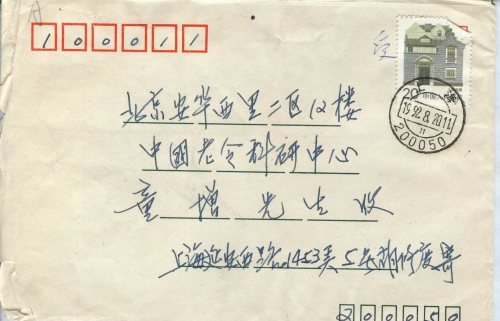 100011
20 中国
上海
1992.8.20.11
11
200050
北京安华西里二区12楼
中国老令科研中心
童增先生收
上海延安西路1453弄5号
200050